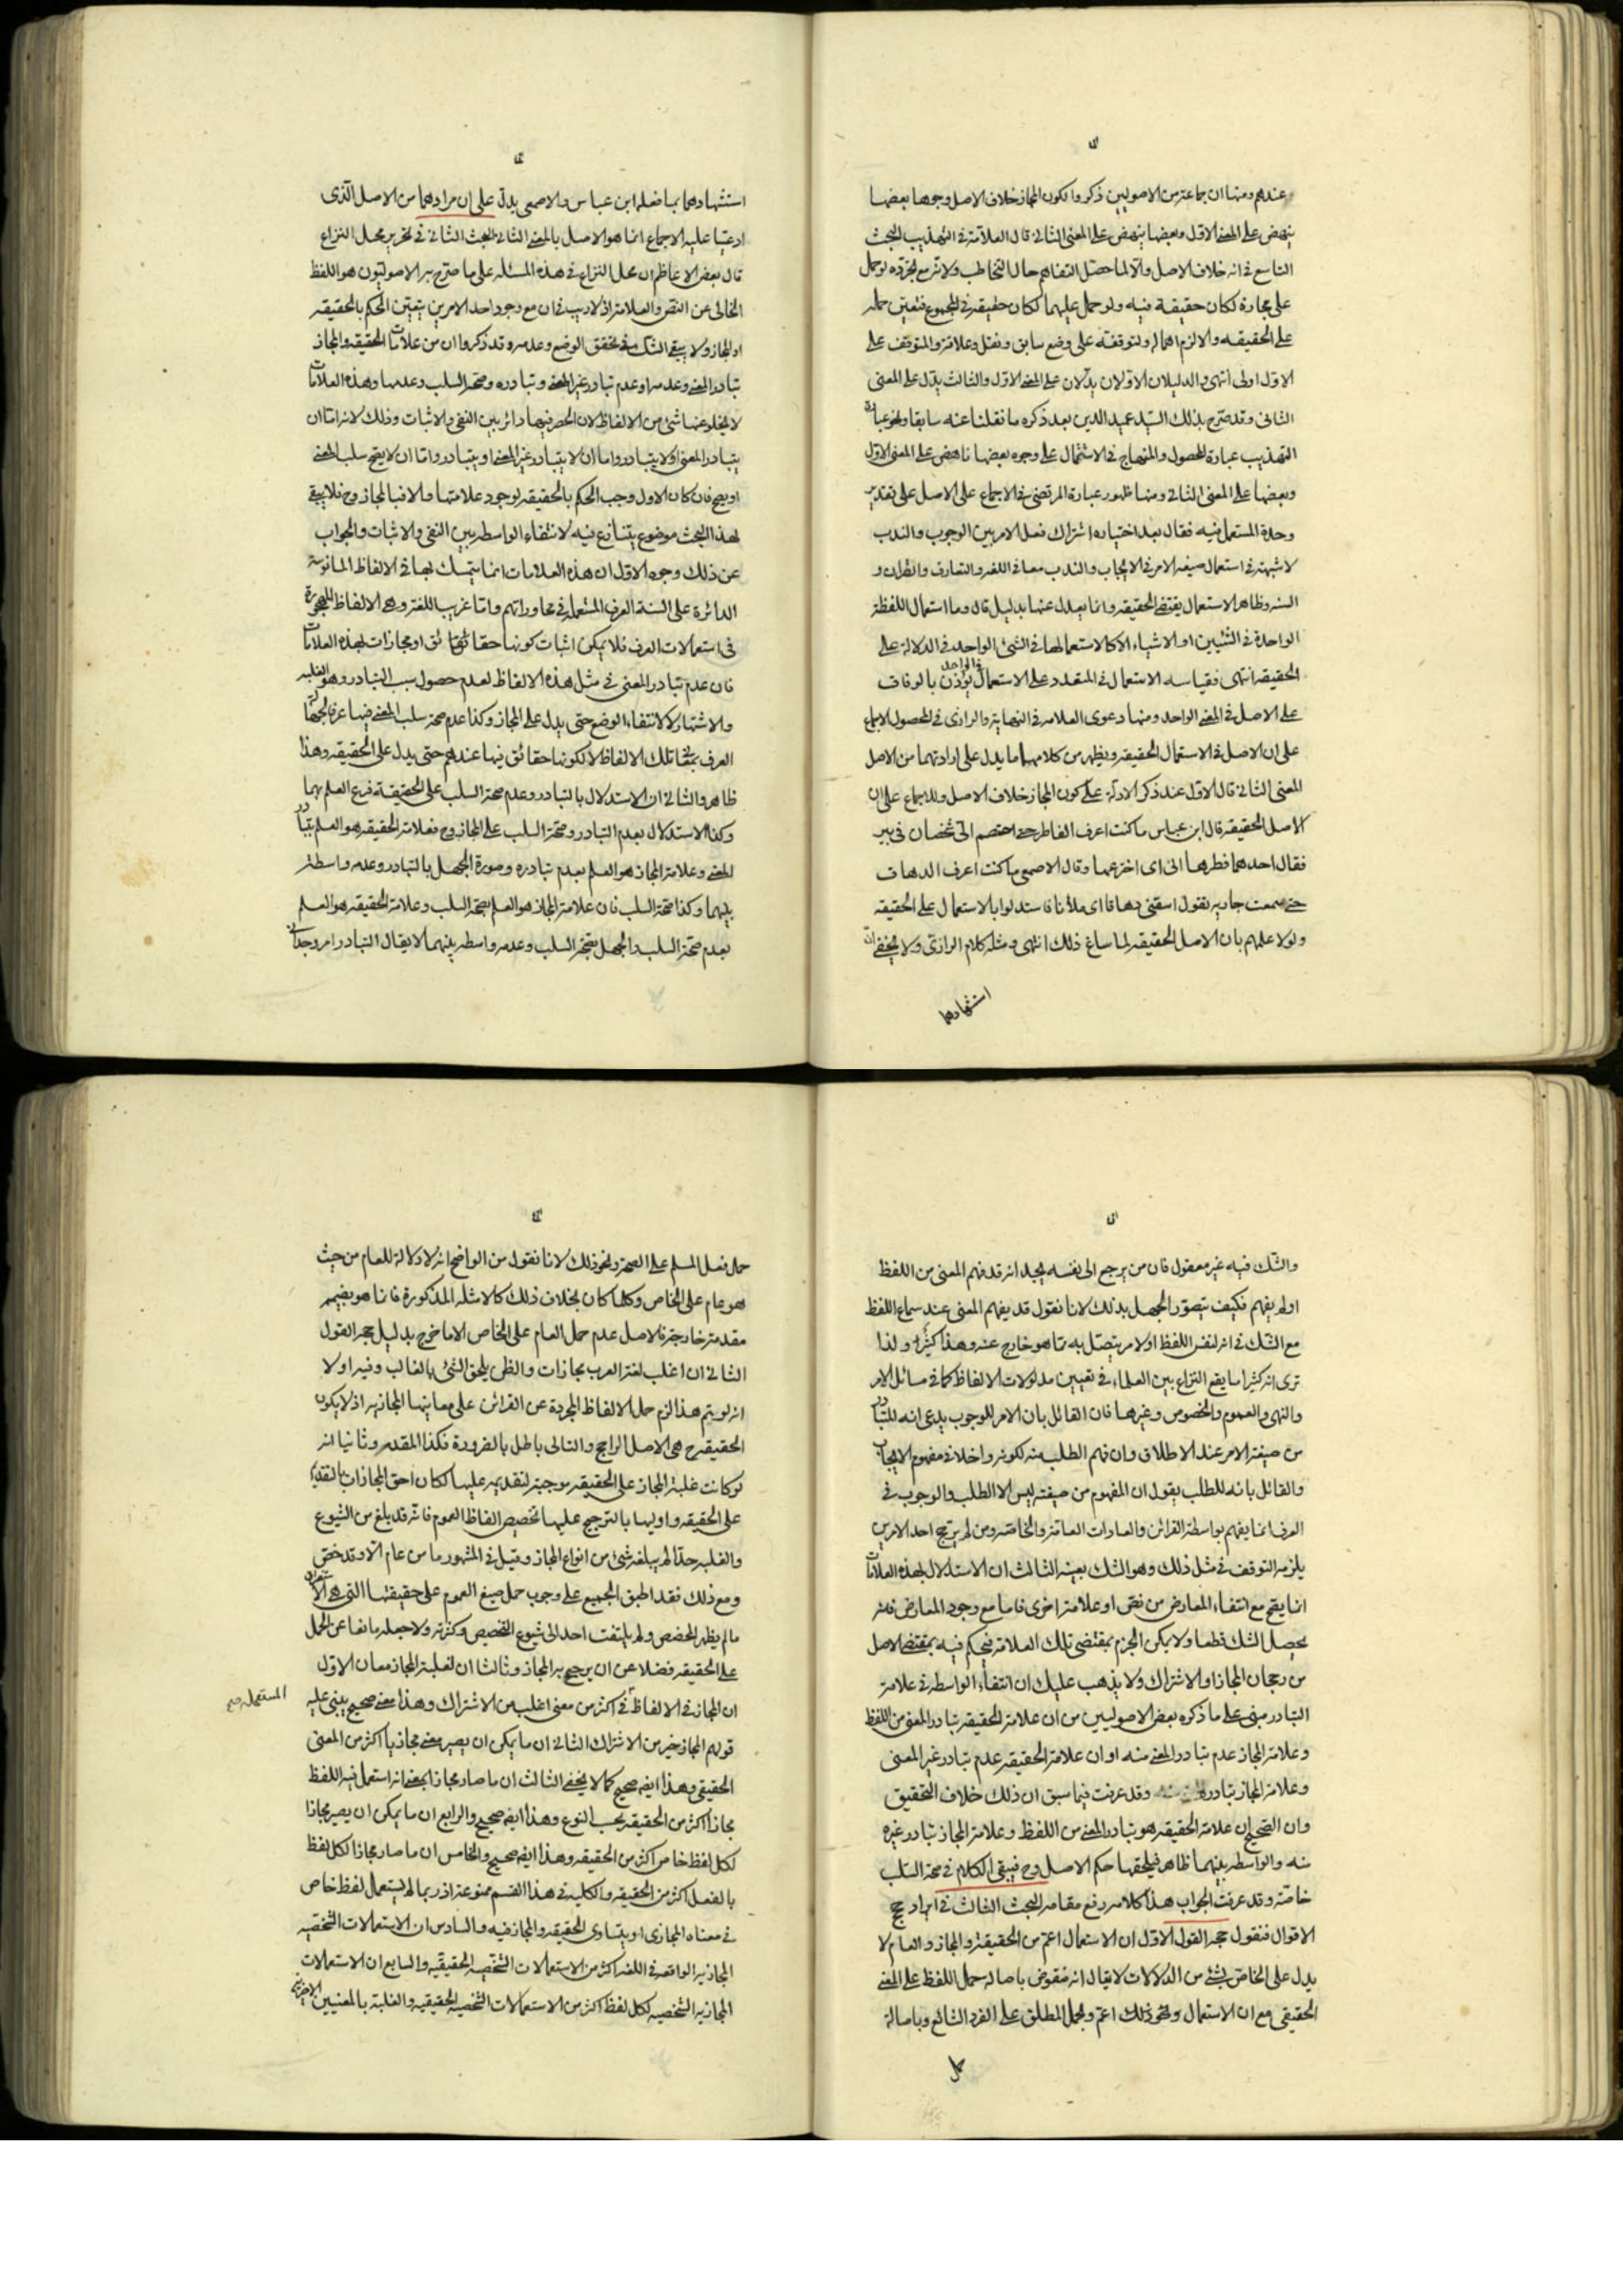 عندهم ومنها ان جماعة من الاصوليين ذكروا لكون المجاز خلاف الاصل وجوها بعضها
ينهض على المعنى الاول وبعضها ينهض على المعنى الثانى قال العلامة فى التهذيب البحث
التاسع فى انه خلاف الاصل والا لما حصل التفاهم حال التخاطب ولانه مع تجرده لو حمل
على مجازه لكان حقيقة فيه ولو حمل عليهما لكان حقيقة فى المجموع فتعين حمله
على الحقيقه والا لزم اهماله ولتوقفه على وضع سابق ونقل وعلاقة والمتوقف على
الاول اولى انتهى والدليلان الاولان يدلان على المعنى الاول والثالث يدل على المعنى
الثانى وقد صرح بذلك السيد عميد الدين بعد ذكره ما نقلنا عنه سابقا ونحو عبارة
التهذيب عبارة المحصول والمنهاج فى الاشتمال على وجوه بعضها ناهض على المعنى الاول
وبعضها على المعنى الثانى ومنها ظهور عبارة المرتضى فى الاجماع على الاصل على تقدير
وحدة المستعمل فيه فقال بعد اختياره اشتراك فعل الامر بين الوجوب والندب
لا شبهة فى استعمال صيغه الامر فى الايجاب والندب معا فى اللغه والتعارف والقران و
السنه وظاهر الاستعمال يقتضى الحقيقه وانما يعدل عنها بدليل قال وما استعمال اللفظة
الواحدة فى الشيئين او الاشياء الا كاستعمالها فى الشئ الواحد فى الدلالة على
الحقيقه انتهى فقياسه الاستعمال فى المتعدد على الاستعمال فى الواحد يؤذن بالوفاق
على الاصل فى المعنى الواحد ومنها دعوى العلامه فى النهاية والرازى فى المحصول الاجماع
على ان الاصل فى الاستعمال الحقيقه ويظهر من كلامهما ما يدل على ارادتهما من الاصل
المعنى الثانى قال الاول عند ذكر الادلة على كون المجاز خلاف الاصل وللاجماع على ان
الاصل الحقيقه قال ابن عباس ما كنت اعرف الفاطر حتى اختصم الى شخصان فى بير
فقال احدهما فطرها ابى اى اخترعها وقال الاصمعى ما كنت اعرف الدهاق
حتى سمعت جارية تقول اسقنى دهاقا اى ملانا فاستدلوا بالاستعمال على الحقيقه
ولولا علمهم بان الاصل الحقيقه لما ساغ ذلك انتهى ومثله كلام الرازى ولا يخفى ان
استشهادهما
استشهادهما بما فعله ابن عباس والاصمعى يدل على ان مرادهما من الاصل الذى
ادعيا عليه الاجماع انما هو الاصل بالمعنى الثانى البحث الثانى فى تحرير محل النزاع
قال بعض الاعاظم ان محل النزاع فى هذه المسئله على ما صرح به الاصوليون هو اللفظ
الخالى عن النص والعلامة اذ لا ريب فى ان مع وجود احد الامرين يتعين الحكم بالحقيقه
او المجاز ولا يبقى الشك فى تحقق الوضع وعدمه وقد ذكروا ان من علامات الحقيقه والمجاز
تبادر المعنى وعدمه او عدم تبادر غير المعنى وتبادره وصحة السلب وعدمها وهذه العلامات
لا يخلو عنها شئ من الالفاظ لان الحصر فيها دائر بين النفى والاثبات وذلك لانه اما ان
يتبادر المعنى او لا يتبادر واما ان لا يتبادر غير المعنى او يتبادر واما ان لا يصح سلب المعنى
او يصح فان كان الاول وجب الحكم بالحقيقه لوجود علامتها والا فبالمجاز وح فلا يبقى
لهذا البحث موضوع يتنازع فيه لانتفاء الواسطه بين النفى والاثبات والجواب
عن ذلك وجوه الاول ان هذه العلامات انما يتمسك بها فى الالفاظ المانوسة
الدائرة على السنة العرف المستعملة فى محاوراتهم واما غريب اللغة وهى الالفاظ المهجورة
فى استعمالات العرف فلا يمكن اثبات كونها حقائق او مجازات بهذه العلامات
فان عدم تبادر المعنى فى مثل هذه الالفاظ لعدم حصول سبب التبادر وهو الغلبه
والاشتهار لا لانتفاء الوضع حتى يدل على المجاز وكذا عدم صحة سلب المعنى فيها عرفا لجهل
العرف بمعانى تلك الالفاظ لا لكونها حقائق فيها عندهم حتى يدل على الحقيقه وهذا
ظاهر والثانى ان الاستدلال بالتبادر وعدم صحة السلب على الحقيقة فرع العلم بهما
وكذا الاستدلال بعدم التبادر وصحة السلب على المجاز وح فعلامة الحقيقه هو العلم بتبادر
المعنى وعلامة المجاز هو العلم بعدم تبادره وصورة الجهل بالتبادر وعدمه واسطة
بينهما وكذا صحة السلب فان علامة المجاز هو العلم بصحة السلب وعلامة الحقيقه هو العلم
بعدم صحة السلب والجهل بصحة السلب وعدمه واسطه بينهما لا يقال التبادر امر وجدانى
والشك فيه غير معقول فان من يرجع الى نفسه يجد انه قد فهم المعنى من اللفظ
او لم يفهم فكيف يتصور الجهل بذلك لانا نقول قد يفهم المعنى عند سماع اللفظ
مع الشك فى انه لنفس اللفظ او لامر يتصل به مما هو خارج عنه وهذا كثير ولذا
ترى انه كثيرا ما يقع النزاع بين العلماء فى تعيين مدلولات الالفاظ كما فى مسائل الامر
والنهى والعموم والخصوص وغيرها فان القائل بان الامر للوجوب يدعى انه المتبادر
من صيغة الامر عند الاطلاق وان فهم الطلب منه لكونه داخلا فى مفهوم الايجاب
والقائل بانه للطلب يقول ان المفهوم من صيغته ليس الا الطلب والوجوب فى
العرف انما يفهم بواسطة القرائن والعادات العامة والخاصه ومن لم يرجح احد الامرين
يلزمه التوقف فى مثل ذلك وهو الشك بعينه الثالث ان الاستدلال بهذه العلامات
انما يصح مع انتفاء المعارض من نص او علامة اخرى فاما مع وجود المعارض فانه
يحصل الشك قطعا ولا يمكن الجزم بمقتضى تلك العلامة فيحكم فيه بمقتضى الاصل
من رجحان المجاز او الاشتراك ولا يذهب عليك ان انتفاء الواسطه فى علامة
التبادر مبنى على ما ذكره بعض الاصوليين من ان علامة الحقيقه تبادر المعنى من اللفظ
وعلامة المجاز عدم تبادر المعنى منه او ان علامة الحقيقه عدم تبادر غير المعنى
وعلامة المجاز تبادره وقد عرفت فيما سبق ان ذلك خلاف التحقيق
وان الصحيح ان علامة الحقيقه هو تبادر المعنى من اللفظ وعلامة المجاز تبادر غيره
منه والواسطه بينهما ظاهر فيلحقها حكم الاصل وح فيبقى الكلام فى صحة السلب
خاصة وقد عرفت الجواب هذا كلامه رفع مقامه البحث الثالث فى ايراد حجج
الاقوال فنقول حجة القول الاول ان الاستعمال اعم من الحقيقة والمجاز والعام لا
يدل على الخاص بشئ من الدلالات لا يقال انه منقوض باصالة حمل اللفظ على المعنى
الحقيقى مع ان الاستعمال ونحو ذلك اعم وبحمل المطلق على الفرد الشائع وباصالة
حمل
حمل فعل المسلم على الصحة ونحو ذلك لانا نقول من الواضح انه لا دلالة للعام من حيث
هو عام على الخاص وكلما كان بخلاف ذلك كالامثله المذكورة فانما هو بضميمه
مقدمة خارجة فالاصل عدم حمل العام على الخاص الا ما خرج بدليل حجة القول
الثانى ان اغلب لغة العرب مجازات والظن يلحق الشئ بالغالب وفيه اولا
انه لو يتم هذا لزم حمل الالفاظ المجردة عن القرائن على معاينها المجازيه اذ لا يكون
الحقيقة ح هى الاصل الراجح والتالى باطل بالضرورة فكذا المقدم وثانيا انه
لو كانت غلبة المجاز على الحقيقه موجبة لتقديمه عليها لكان احق المجازات بالتقديم
على الحقيقه واوليها بالترجيح عليها تخصيص الفاظ العموم فانه قد بلغ من الشيوع
والغلبه حدا لم يبلغه شئ من انواع المجاز وقيل فى المشهور ما من عام الا وقد خص
ومع ذلك فقد اطبق الجميع على وجوب حمل صيغ العموم على حقيقتها التى هى الاستغراق
ما لم يظهر المخصص ولم يلتفت احد الى شيوع التخصيص وكثرته ولا جعله مانعا عن الحمل
على الحقيقه فضلا عن ان يرجح به المجاز وثالثا ان لغلبة المجاز معان الاول
ان المجاز فى الالفاظ فى اكثر من معنى اغلب من الاشتراك وهذا معنى صحيح يبنى عليه
المستعملة صح
قولهم المجاز خير من الاشتراك الثانى ان ما يمكن ان يصير معنى مجازيا اكثر من المعنى
الحقيقى وهذا ايضه صحيح كما لا يخفى الثالث ان ما صار مجازا بمعنى انه استعمل فيه اللفظ
مجازا اكثر من الحقيقه بحسب النوع وهذا ايضه صحيح والرابع ان ما يمكن ان يصير مجازا
لكل لفظ خاص اكثر من الحقيقه وهذا ايضه صحيح والخامس ان ما صار مجازا لكل لفظ
بالفعل اكثر من الحقيقه والكليه فى هذا القسم ممنوعة اذ ربما لم يستعمل لفظ خاص
فى معناه المجازى او يتساوى الحقيقه والمجاز فيه والسادس ان الاستعمالات الشخصيه
المجازيه الواقعه فى اللغه اكثر من الاستعمالات الشخصيه الحقيقيه والسابع ان الاستعمالات
المجازيه الشخصيه لكل لفظ اكثر من الاستعمالات الشخصيه الحقيقيه والغلبة بالمعنيين الاخيرين